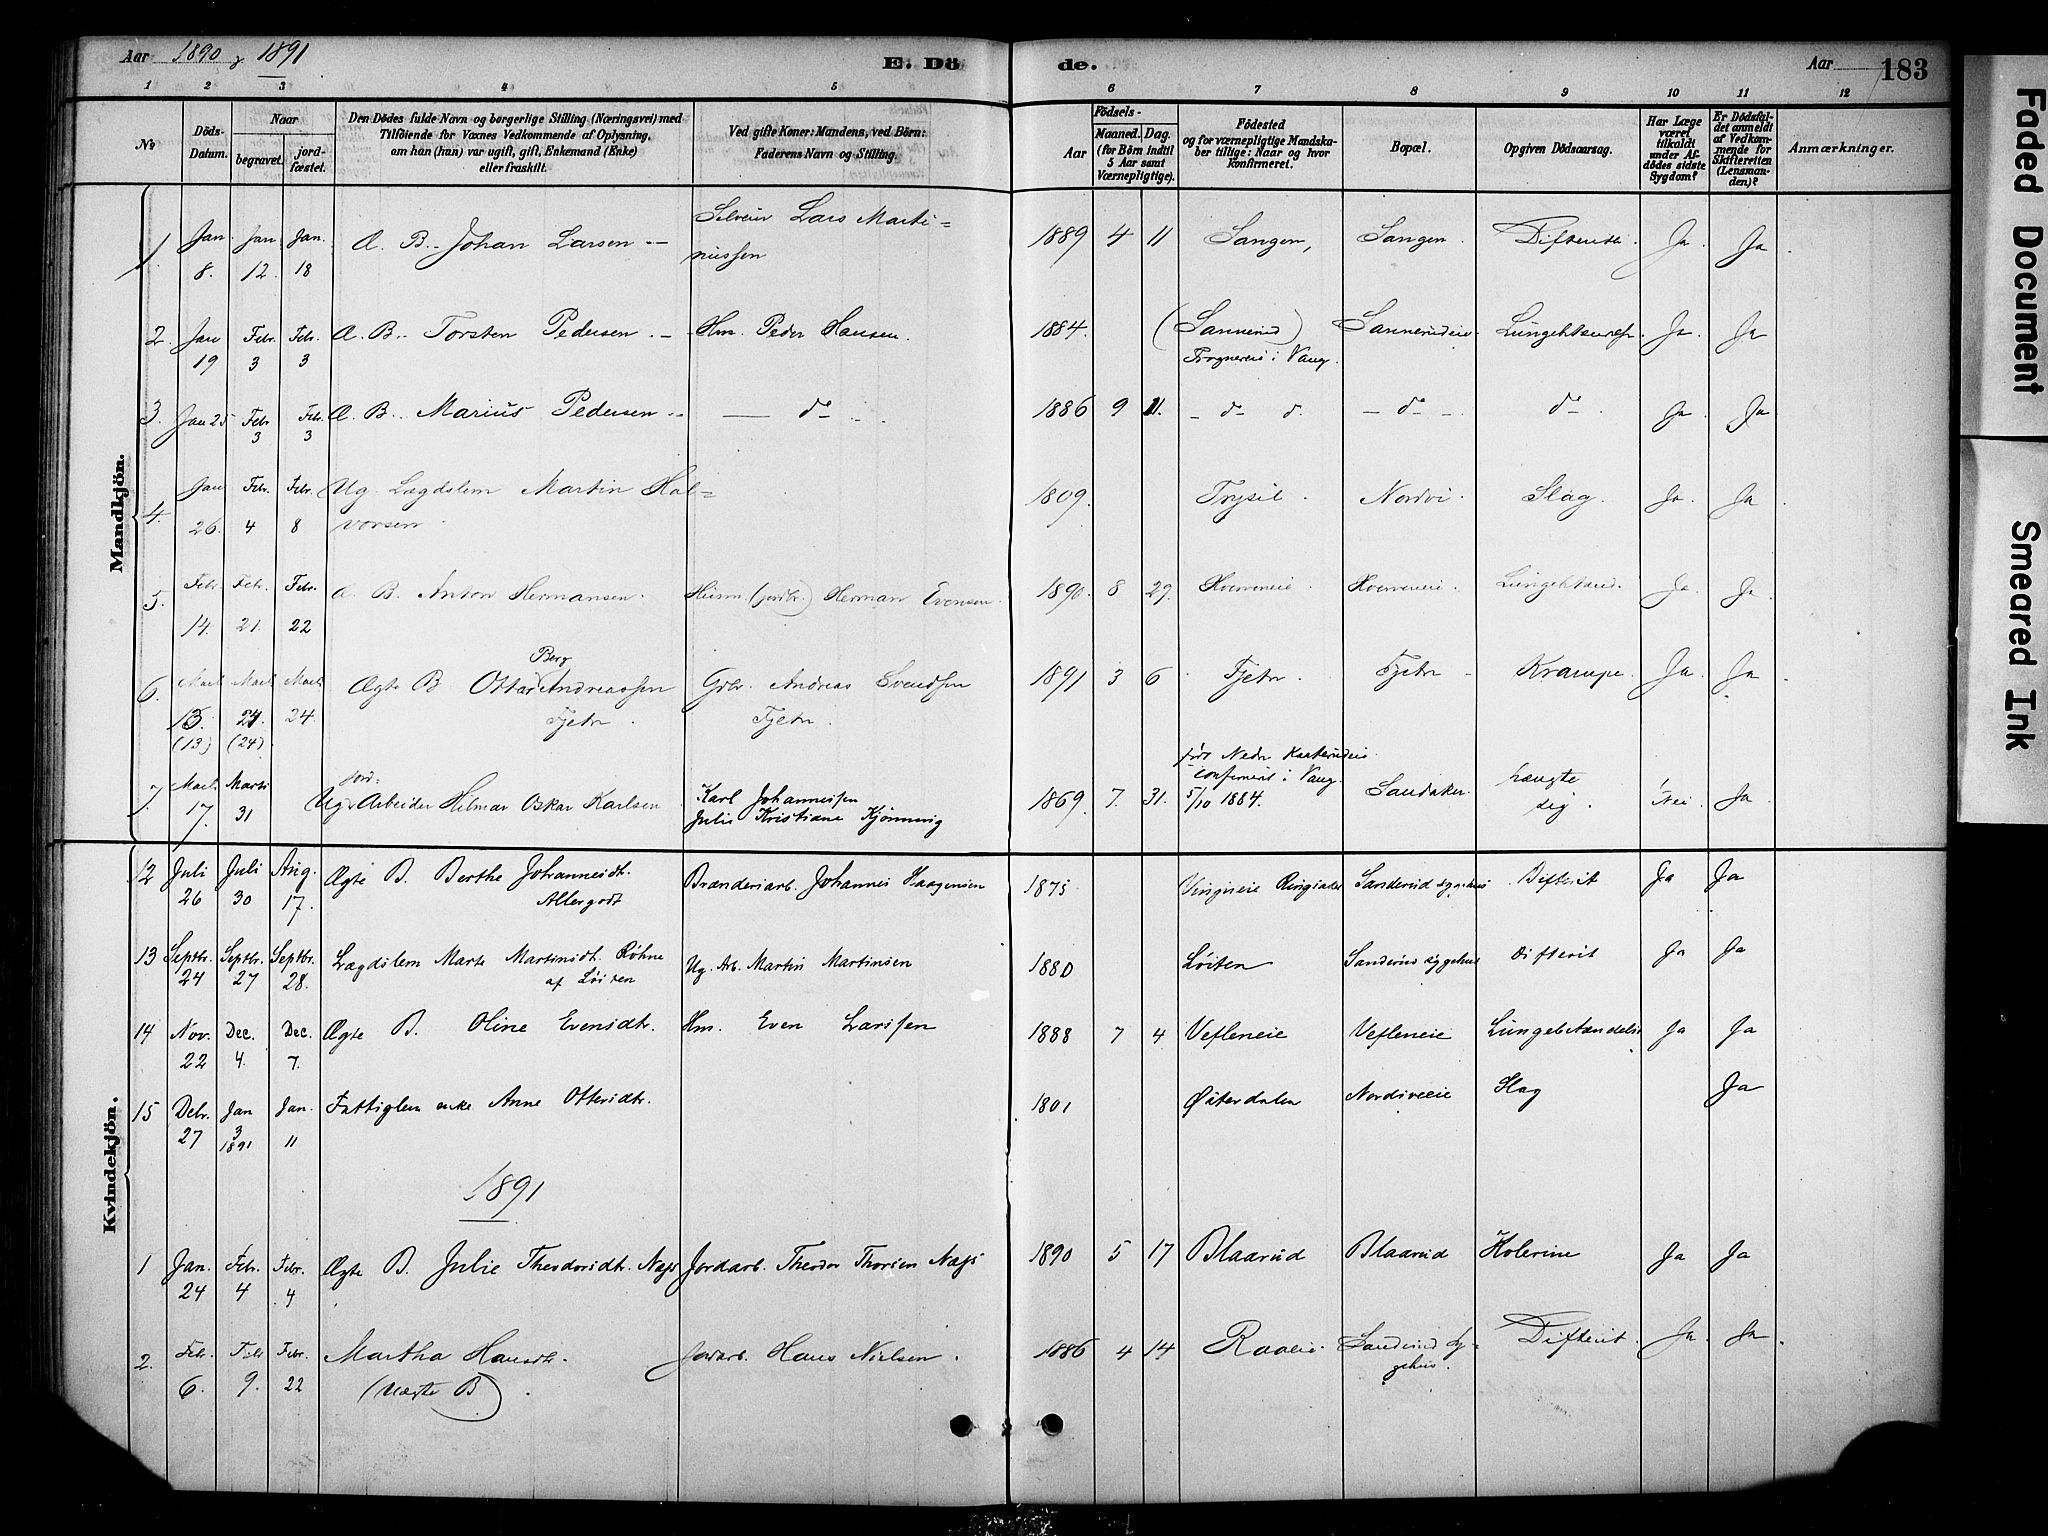 Aar 1890 & 1891 E. Dö de. Aar 183
1 2 3 4 5 6 7 8 9 10 11 12
No
Döds-Datum.
Naar
begravet.
jord-fæstet.
Den Dödes fulde Navn og borgerlige Stilling (Næringsvei) med
Tilföiende for Voxnes Vedkommende af Oplysning,
om han (hun) var ugift, gift, Enkemand (Enke)
eller fraskilt.
Ved gifte Koner: Mandens, ved Börn:
Faderens Navn og Stilling.
Födsels-
Aar
Maaned. Dag.
(for Börn indtil
5 Aar samt
Værnepligtige).
Födested
og for værnepligtige Mandska-
ber tillige: Naar og hvor
Konfirmeret.
Bopæl.
Opgiven Dödsaarsag.
Har Læge
været
tilkaldt
under Af-
dödes sidste
Sygdom?
Er Dödsfal-
det anmeldt
af Vedkom-
mende for
Skifteretten
(Lensman-
den)?
Anmærkninger.
Mandkjön.
1. Jan. 8. Jan 12. Jan. 18 Æ. B. Johan Larsen Lars Marti=
nussen 1889 4 11 Sangen, Sangen. Ja. Ja
2. Jan 19 Febr. 3 Febr. 3 Æ. B. Torsten Pedersen Hm. Peder Hansen. 1884. (Sannerud)
i Vang. Ja. Ja
3. Jan 25 Febr 3 Febr. 3 Æ. B. Marius Pedersen do 1886 9 11. do do do Ja Ja
4. Jan 26. Febr. 4 Febr. 8 Ug. Lægdslem Martin Hal=
vorsen. 1809. Trysil. Nordvi. Slag. Ja. Ja
5. Febr. 14. Febr. 21. Febr. 22 Æ. B. Anton Hermansen. Husm. (jordbr.) Herman Evensen. 1890. 8 29. Ja. Ja.
6. Mart. 13. (13) Mart. 24. (24) Mart. 24. Ægte B. Ottar Berg Andreassen
Tjetn. Gbr. Andreas Svendsen
Tjetn. 1891 3 6 Tjetn Tjetn Krampe. Ja. Ja
7. Mart. 17. Marts 31 Ug. Jord-Arbeider Hilmar Oskar Karlsen Karl Johannessen
Julie Kristiane
1869 7. 31. Nedr
i Vang.
5/10 1884. Sandaker. hængte
sig. Nei. Ja.
Kvindekjön.
12 Juli 26 Juli 30 Aug. 17. Ægte B. Berthe Johannesdt.
Allergodt Brænderiarb. Johannes Haagensen 1875 Sanderud sygehus Difterit Ja Ja
13 Septbr. 24 Septbr. 27 Septbr. 28. Lægdslem Marte Martinsdt. Röhne
af Löiten Ug. Arb. Martin Martinsen 1880 Löiten Sanderud sygehus Difterit Ja Ja
14 Nov. 22 Dec. 4. Dec. 7. Ægte B. Oline Evensdtr. Hm. Even Larssen 1888 7 4 Vefleneie Vefleneie Lungebetændelse Ja Ja
15 Debr. 27 Jan 3 1891 Jan. 11 Fattiglem enke Anne Ottersdtr. 1801 Østerdalen Nordvieie Slag Ja
1891
1 Jan. 24 Febr. 4 Febr. 4 Ægte B. Julie Theodorsdtr. Næss Jordarb. Theodor Thorsen Næss 1890 5 17 Blaarud Blaarud Kolerine Ja Ja
2. Febr. 6. Febr 9. Febr. 22 Martha Hansdtr.
(Uægte B) Jordarb. Hans Nielsen. 1886 4 14 Raaeie. Sanderud Sy=
gehus. Difterit. Ja. Ja.
Faded Document
Smeared Ink